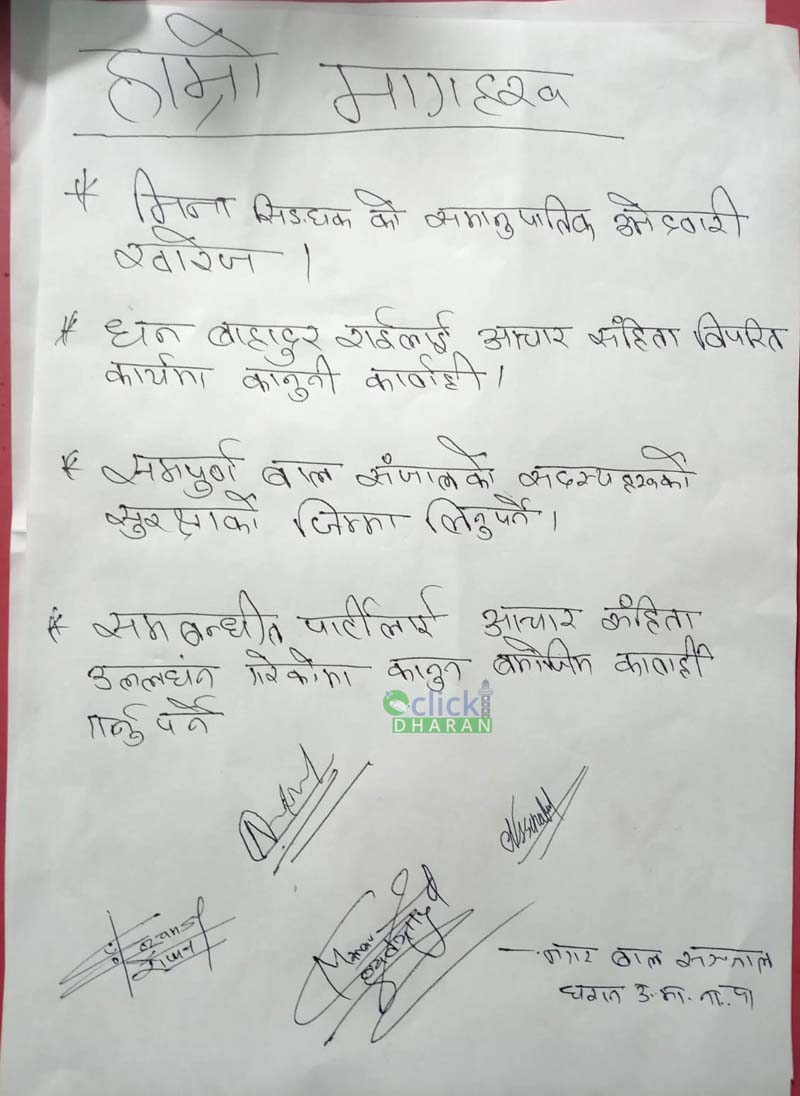 हाम्रो मागहरू
* मिना सिङधक को समानुपातिक उमेदवारी
खारेज ।
* धन बाहादुर राईलाई आचार संहिता विपरित
कार्यमा कानुनी कार्वाही ।
* समपुर्ण बाल संजालको सदस्यहरूको
सुरक्षाको जिम्मा लिनुपर्ने ।
* समबन्धीत पार्टीलाई आचार संहिता
उललघंन गरेकोमा कानुन बमोजिम कार्वाही
गर्नु पर्ने
click
DHARAN
नगर बाल सञ्जाल
धरान उ.म.न.पा